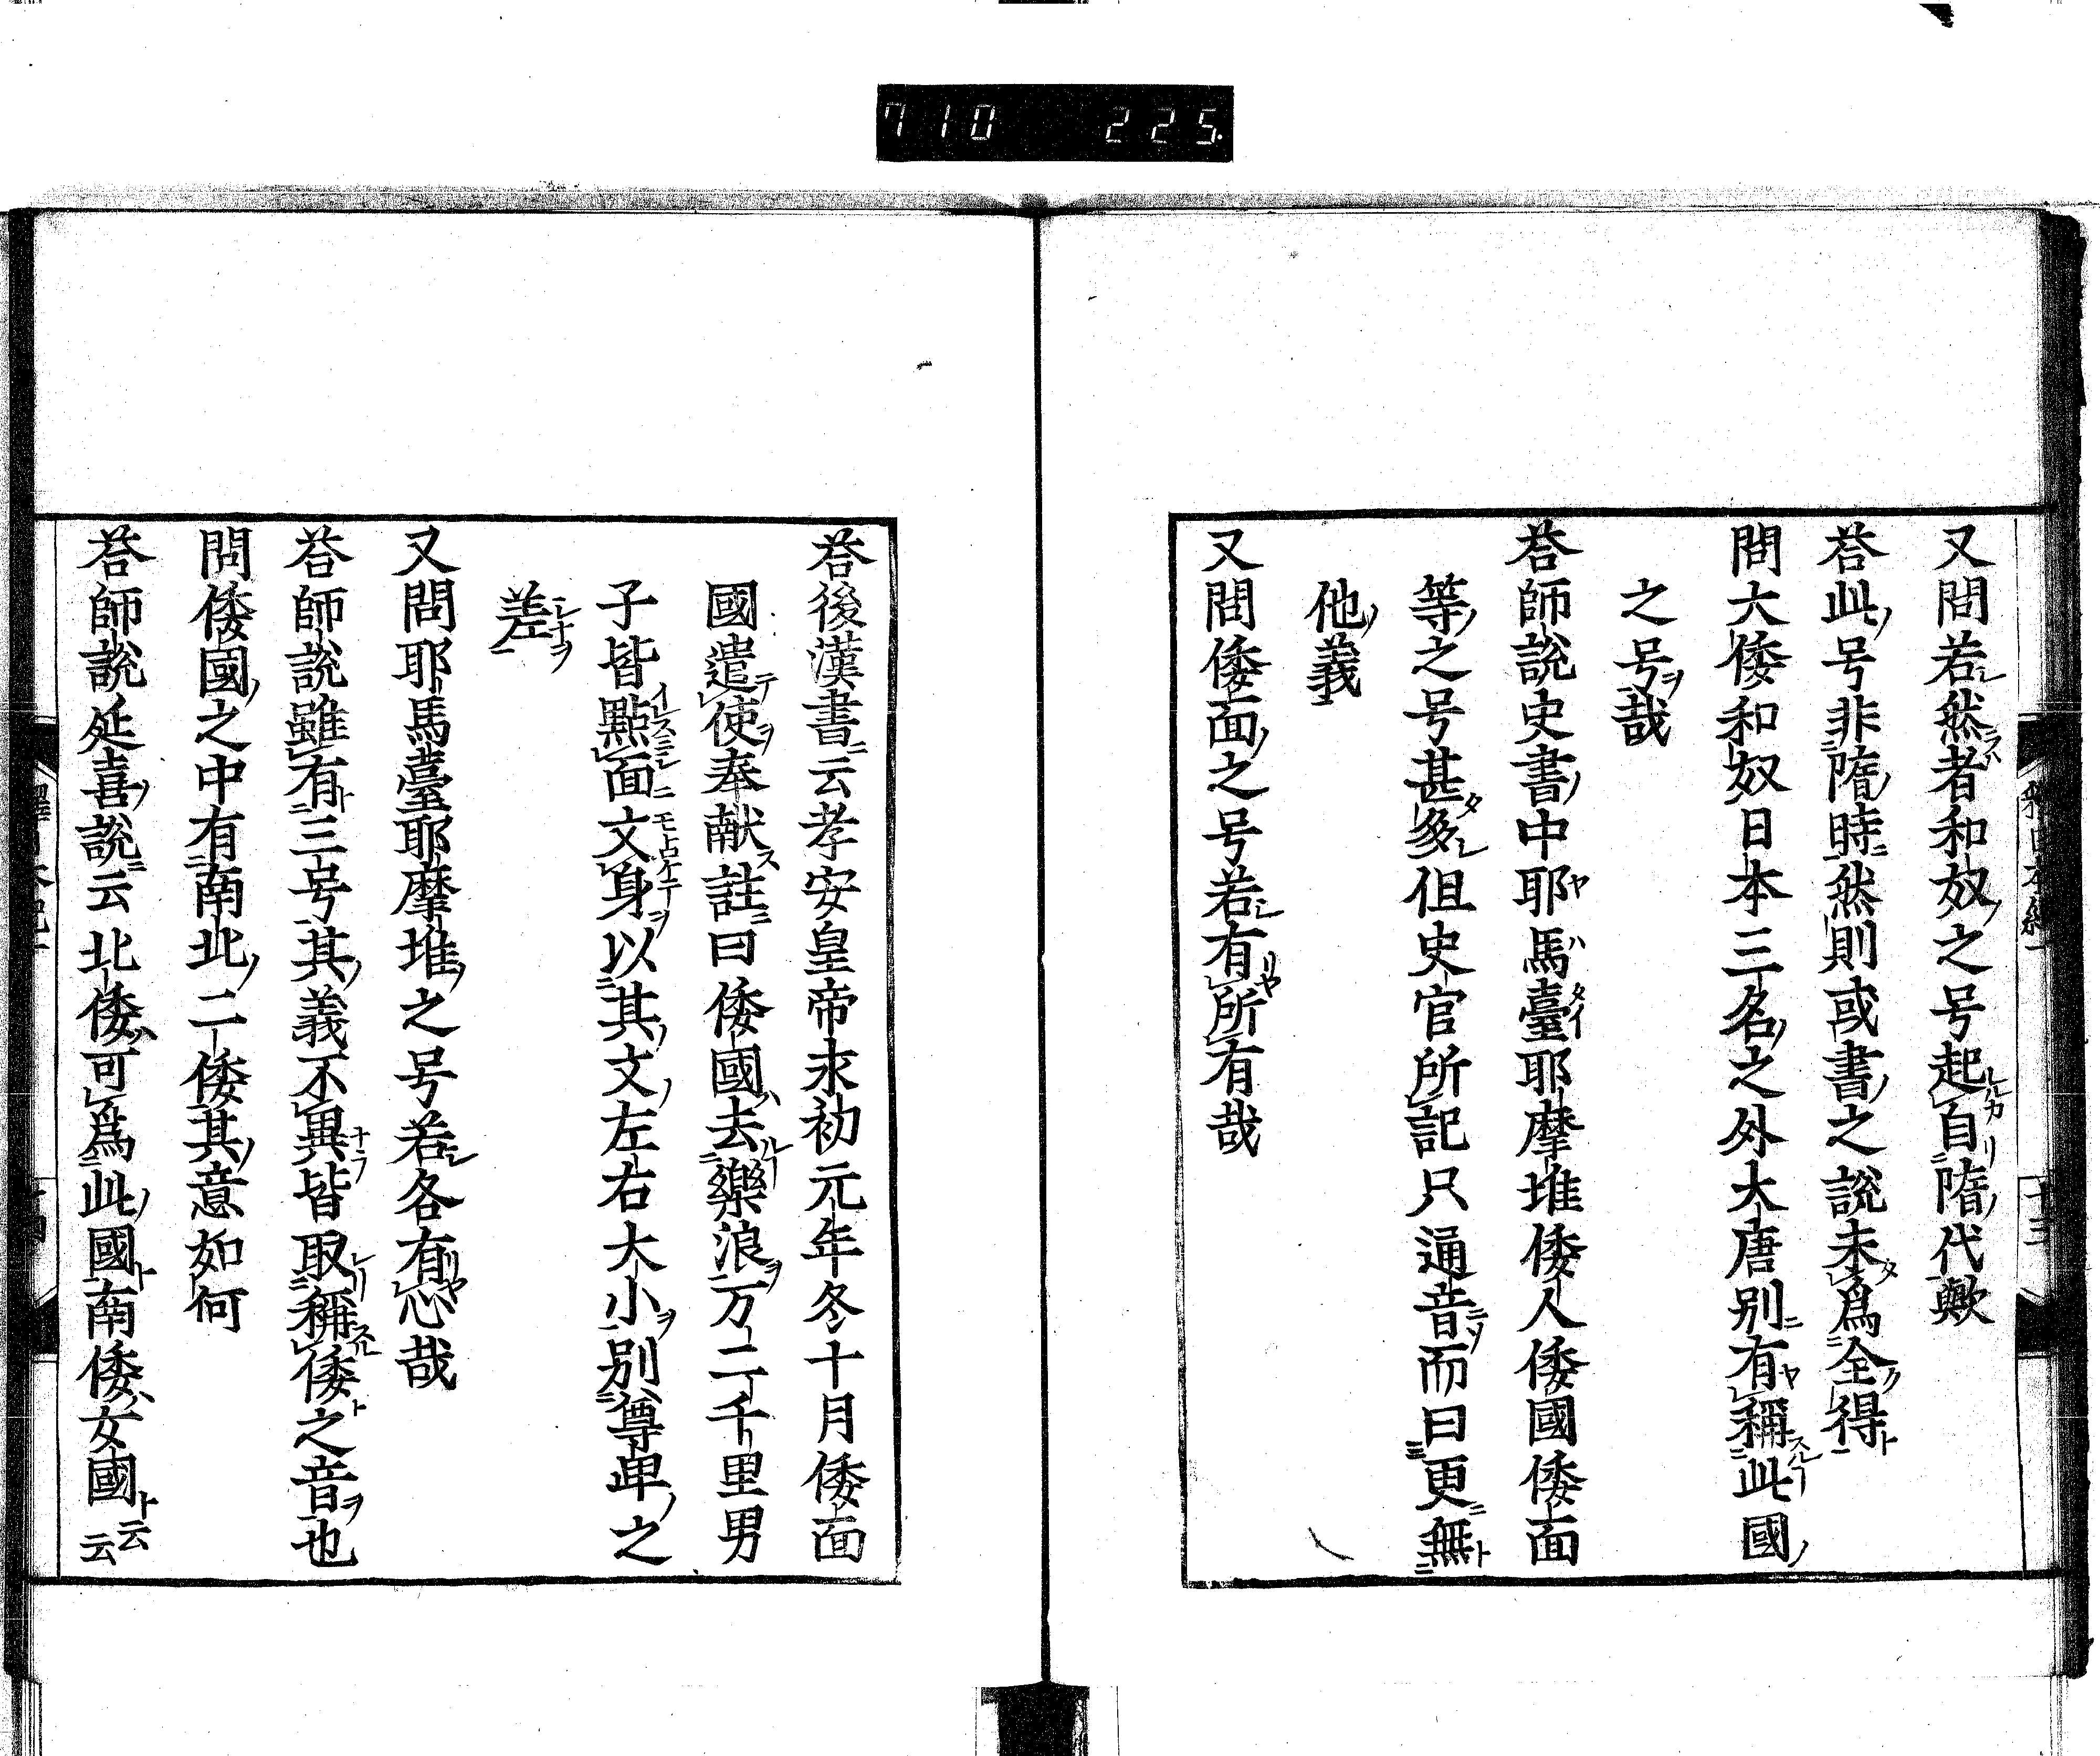 710 225.
又問若然者和奴之号起自隋代歟
荅此号非隋時然則或書之說未為全得
問大倭和奴日本三名之外大唐別有稱此國
之号哉
荅師說史書中耶馬臺耶摩堆倭人倭國倭面
等之号甚多但史官所記只通音而曰更無
他義
又問倭面之号若有所有哉
荅後漢書云孝安皇帝永初元年冬十月倭面
國遣使奉献註曰倭國去樂浪万二千里男
子皆點面文身以其文左右大小別尊卑之
差
又問耶馬臺耶摩堆之号若各有心哉
荅師說雖有三号其義不異皆取稱倭之音也
問倭國之中有南北二倭其意如何
荅師說延喜說云北倭可為此國南倭女國云云